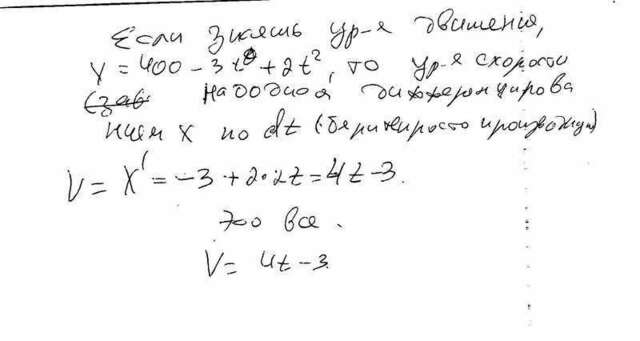 Если знаешь ур-я движения,
x = 400 - 3t + 2t², то ур-я скорости
находится дифференцирова
нием x по dt (берит просто производную)
V = X' = -3 + 2·2t = 4t - 3.
это все.
V = 4t - 3